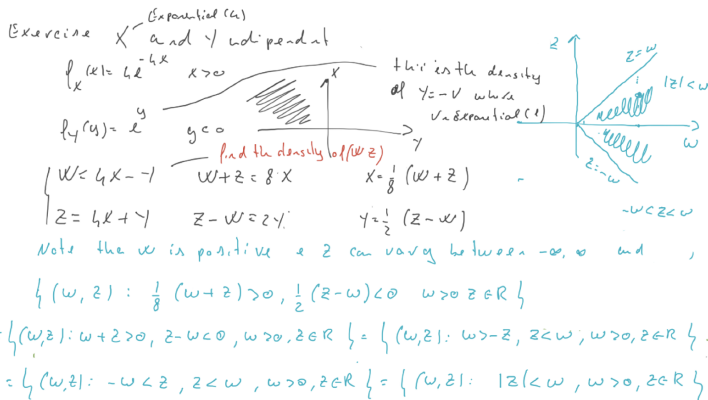 Exponential (4)
Exercise X and Y independent
f_X(x) = 4e^{-4x} x>0
this is the density
of Y=-V where
V~Exponential(1)
f_Y(y) = e^y y<0
X
Y
find the density of (W Z)
W = 4X - Y W+Z = 8X X = 1/8 (W+Z)
Z = 4X + Y Z-W = 2Y Y = 1/2 (Z-W)
Z
Z=W
|Z|<W
W
Z=-W
-W<Z<W
Note the W is positive e Z can vary between -∞, ∞ and ,
{ (w, z) : 1/8 (w+z)>0, 1/2 (z-w)<0 w>0 z∈R }
= { (w,z): w+z>0, z-w<0, w>0, z∈R } = { (w,z): w>-z, z<w, w>0, z∈R }
= { (w,z): -w<z, z<w, w>0, z∈R } = { (w,z): |z|<w, w>0, z∈R }